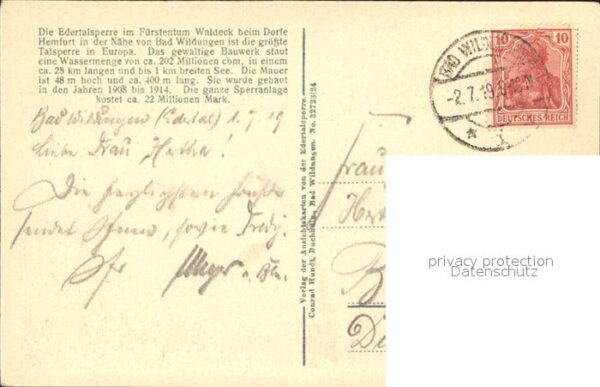 Die Edertalsperre im Fürstentum Waldeck beim Dorfe
Hemfurt in der Nähe von Bad Wildungen ist die größte
Talsperre in Europa. Das gewaltige Bauwerk staut
eine Wassermenge von ca. 202 Millionen cbm, in einem
ca. 28 km langen und bis 1 km breiten See. Die Mauer
ist 48 m hoch und ca. 400 m lang. Sie wurde gebaut
in den Jahren 1908 bis 1914. Die ganze Sperranlage
kostet ca. 22 Millionen Mark.
Bad Wildungen (Edertal) 1.7.19
Liebe Frau Hertha!
Die herzlichsten Grüße
sendet Ihnen, sowie Fredy,
Ihr
Verlag der Ansichtskarten von der Edertalsperre
Conrad Hundt, Buchhdlg., Bad Wildungen. No. 32723/24
BAD WILD
-2.7.19
10 10
DEUTSCHES REICH
Frau
Hert
B
privacy protection
Datenschutz